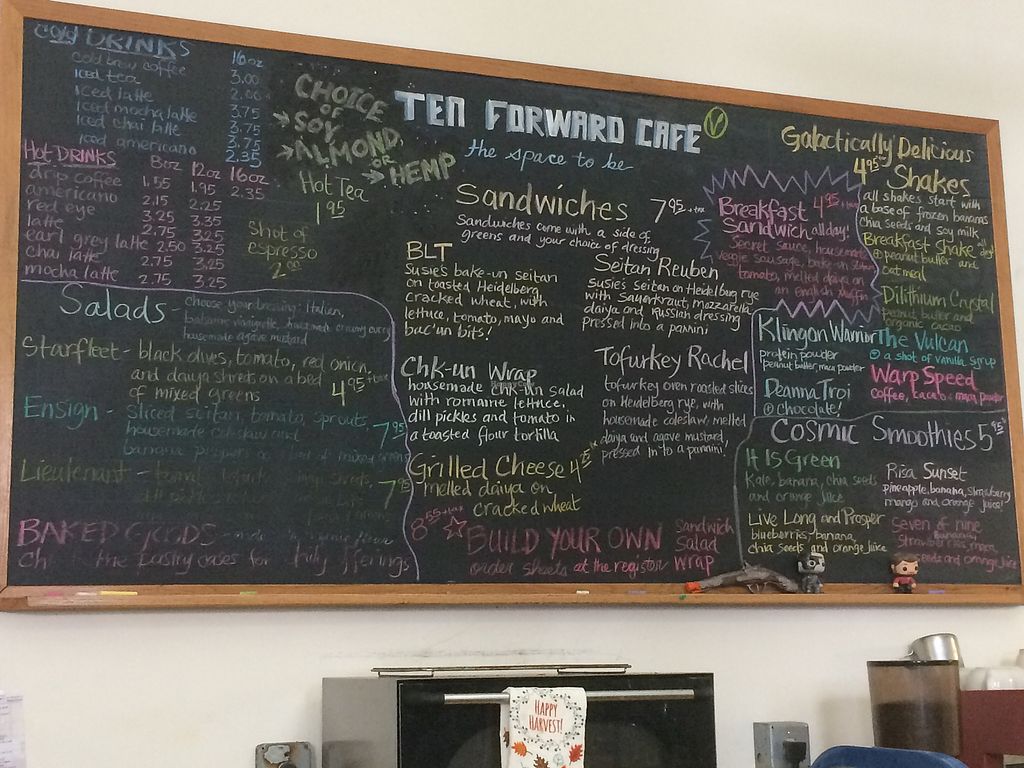 COLD DRINKS 16oz
cold brew coffee 3.00
iced tea 2.00
iced latte 3.75
iced mocha latte 3.75
iced chai latte 3.75
iced americano 2.35
HOT DRINKS 8oz 12oz 16oz
drip coffee 1.55 1.95 2.35
americano 2.15 2.25
red eye 3.25 3.35
latte 2.75 3.25
earl grey latte 2.50 3.25
chai latte 2.75 3.25
mocha latte 2.75 3.25
CHOICE
OF
→ SOY,
→ ALMOND,
OR
→ HEMP
Hot Tea
1.95
Shot of
espresso
2.00
TEN FORWARD CAFE V
the space to be
Salads - choose your dressing: Italian,
balsamic vinaigrette, housemade creamy curry
housemade agave mustard
Starfleet - black olives, tomato, red onion,
and daiya shreds on a bed
of mixed greens 4.95 + tax
Ensign - sliced seitan, tomato, sprouts,
housemade coleslaw and
banana peppers on a bed of mixed greens 7.95
Lieutenant - 7.95
BAKED GOODS -
the pastry cases for offerings
Sandwiches 7.95 + tax
Sandwiches come with a side of
greens and your choice of dressing
BLT
Susie's bake-un seitan
on toasted Heidelberg
cracked wheat, with
lettuce, tomato, mayo and
bac'un bits!
Chk-un Wrap
housemade chk-un salad
with romaine lettuce,
dill pickles and tomato in
a toasted flour tortilla
Grilled Cheese 4.25
melted daiya on
cracked wheat
Seitan Reuben
Susie's Seitan on Heidelberg rye
with Sauerkraut, mozzarella
daiya and Russian dressing
pressed into a panini
Tofurkey Rachel
tofurkey oven roasted slices
on Heidelberg rye, with
housemade coleslaw, melted
daiya and agave mustard,
pressed in to a panini
8.55 + tax BUILD YOUR OWN
order sheets at the register
Sandwich
salad
wrap
Breakfast 4.95 + tax
Sandwich all day!
Secret sauce, housemade
veggie sausage, bake-un seitan
tomato, melted daiya on
an English muffin
Galactically Delicious
4.95 Shakes
all shakes start with
a base of frozen bananas
chia seeds and soy milk
Breakfast Shake all day
⊕ peanut butter and
oatmeal
Dilithium Crystal
peanut butter and
organic cacao
Klingon Warrior
protein powder
peanut butter, maca powder
The Vulcan
⊕ a shot of vanilla syrup
Deanna Troi
⊕ chocolate!
Warp Speed
coffee, cacao + maca powder
Cosmic Smoothies 5.95
It Is Green
Kale, banana, chia seeds
and orange juice
Live Long and Prosper
blueberries, banana,
chia seeds and orange juice
Risa Sunset
pineapple, banana, strawberry
mango and orange juice!
Seven of nine
seeds and orange juice
HAPPY
HARVEST!